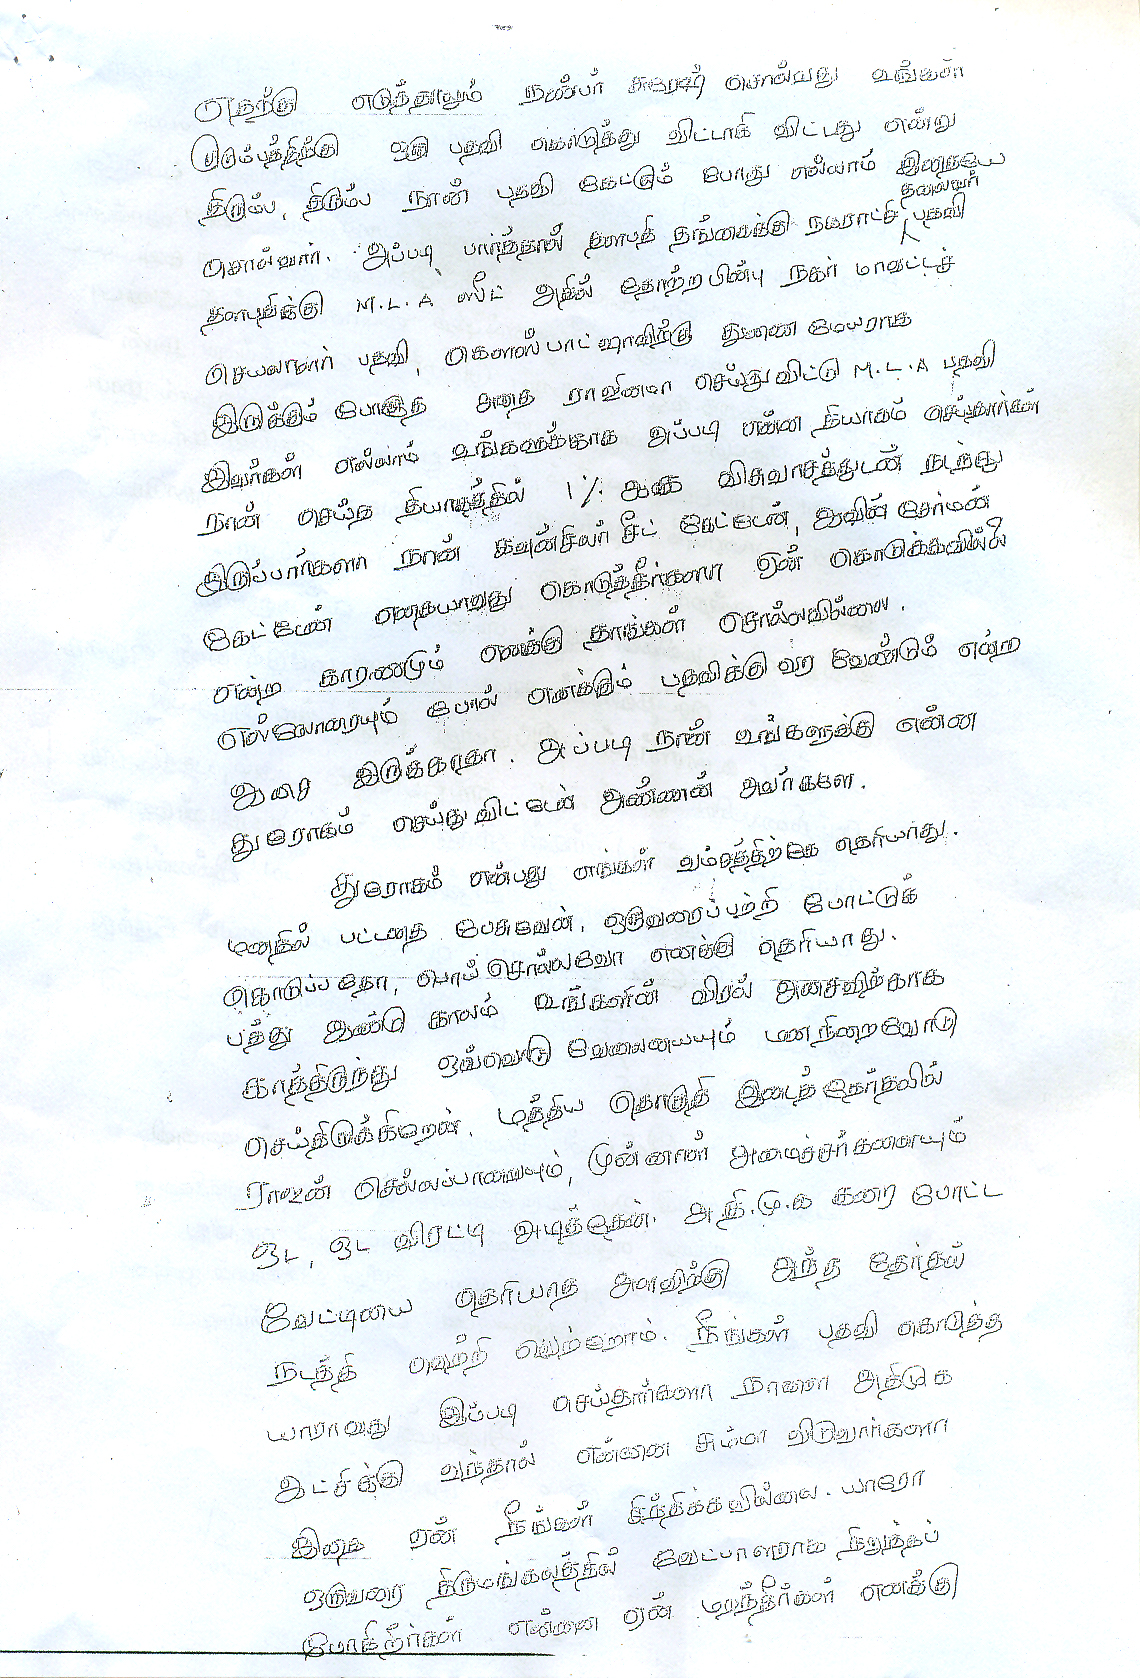 எதற்கு எடுத்தாலும் நண்பர் சுரேஷ் சொல்வது உங்கள்
குடும்பத்திற்கு ஒரு பதவி கொடுத்து விட்டாகி விட்டது என்று
திரும்ப, திரும்ப நான் பதவி கேட்கும் போது எல்லாம் இதையே
சொல்வார். அப்படி பார்த்தால் தளபதி தங்கைக்கு நகராட்சி தலைவர் பதவி
தளபதிக்கு M.L.A சீட் அதில் தோற்ற பின்பு நகர் மாவட்டச்
செயலாளர் பதவி, கௌஸ்பாட்ஷாவிற்கு துணை மேயராக
இருக்கும் போதே அதை ராஜினமா செய்து விட்டு M.L.A பதவி
இவர்கள் எல்லாம் உங்களுக்காக அப்படி என்ன தியாகம் செய்தார்கள்
நான் செய்த தியாகத்தில் 1% ஆவது விசுவாசத்துடன் நடந்து
இருப்பார்களா நான் கவுன்சிலர் சீட் கேட்டேன், ஆவின் சேர்மன்
கேட்டேன் எதையாவது கொடுத்தீர்களா ஏன் கொடுக்கவில்லை
என்ற காரணமும் எனக்கு தாங்கள் சொல்லவில்லை.
எல்லோரையும் போல் எனக்கும் பதவிக்கு வர வேண்டும் என்ற
ஆசை இருக்காதா. அப்படி நான் உங்களுக்கு என்ன
துரோகம் செய்து விட்டேன் அண்ணன் அவர்களே.
துரோகம் என்பது எங்கள் வம்சத்திற்கே தெரியாது.
மனதில் பட்டதை பேசுவேன். ஒருவரைப்பற்றி போட்டுக்
கொடுப்பதோ, பொய் சொல்லவோ எனக்கு தெரியாது.
பத்து ஆண்டு காலம் உங்களின் விரல் அசைவிற்காக
காத்திருந்து ஒவ்வொரு வேலையையும் மனநிறைவோடு
செய்திருக்கிறேன். மத்திய தொகுதி இடைத்தேர்தலில்
ராஜன் செல்லப்பாவையும், முன்னாள் அமைச்சர்களையும்
ஓட, ஓட விரட்டி அடித்தேன். அ.தி.மு.க கரை போட்ட
வேட்டியை தெரியாத அளவிற்கு அந்த தேர்தல்
நடத்தி வெற்றி பெற்றோம். நீங்கள் பதவி கொடுத்த
யாராவது இப்படி செய்தார்களா நாளை அதிமுக
ஆட்சிக்கு வந்தால் என்னை சும்மா விடுவார்களா
இதை ஏன் நீங்கள் சிந்திக்கவில்லை. யாரோ
ஒருவரை திருமங்கலத்தில் வேட்பாளராக நிறுத்தப்
போகிறீர்கள் என்னை ஏன் மறந்தீர்கள் எனக்கு